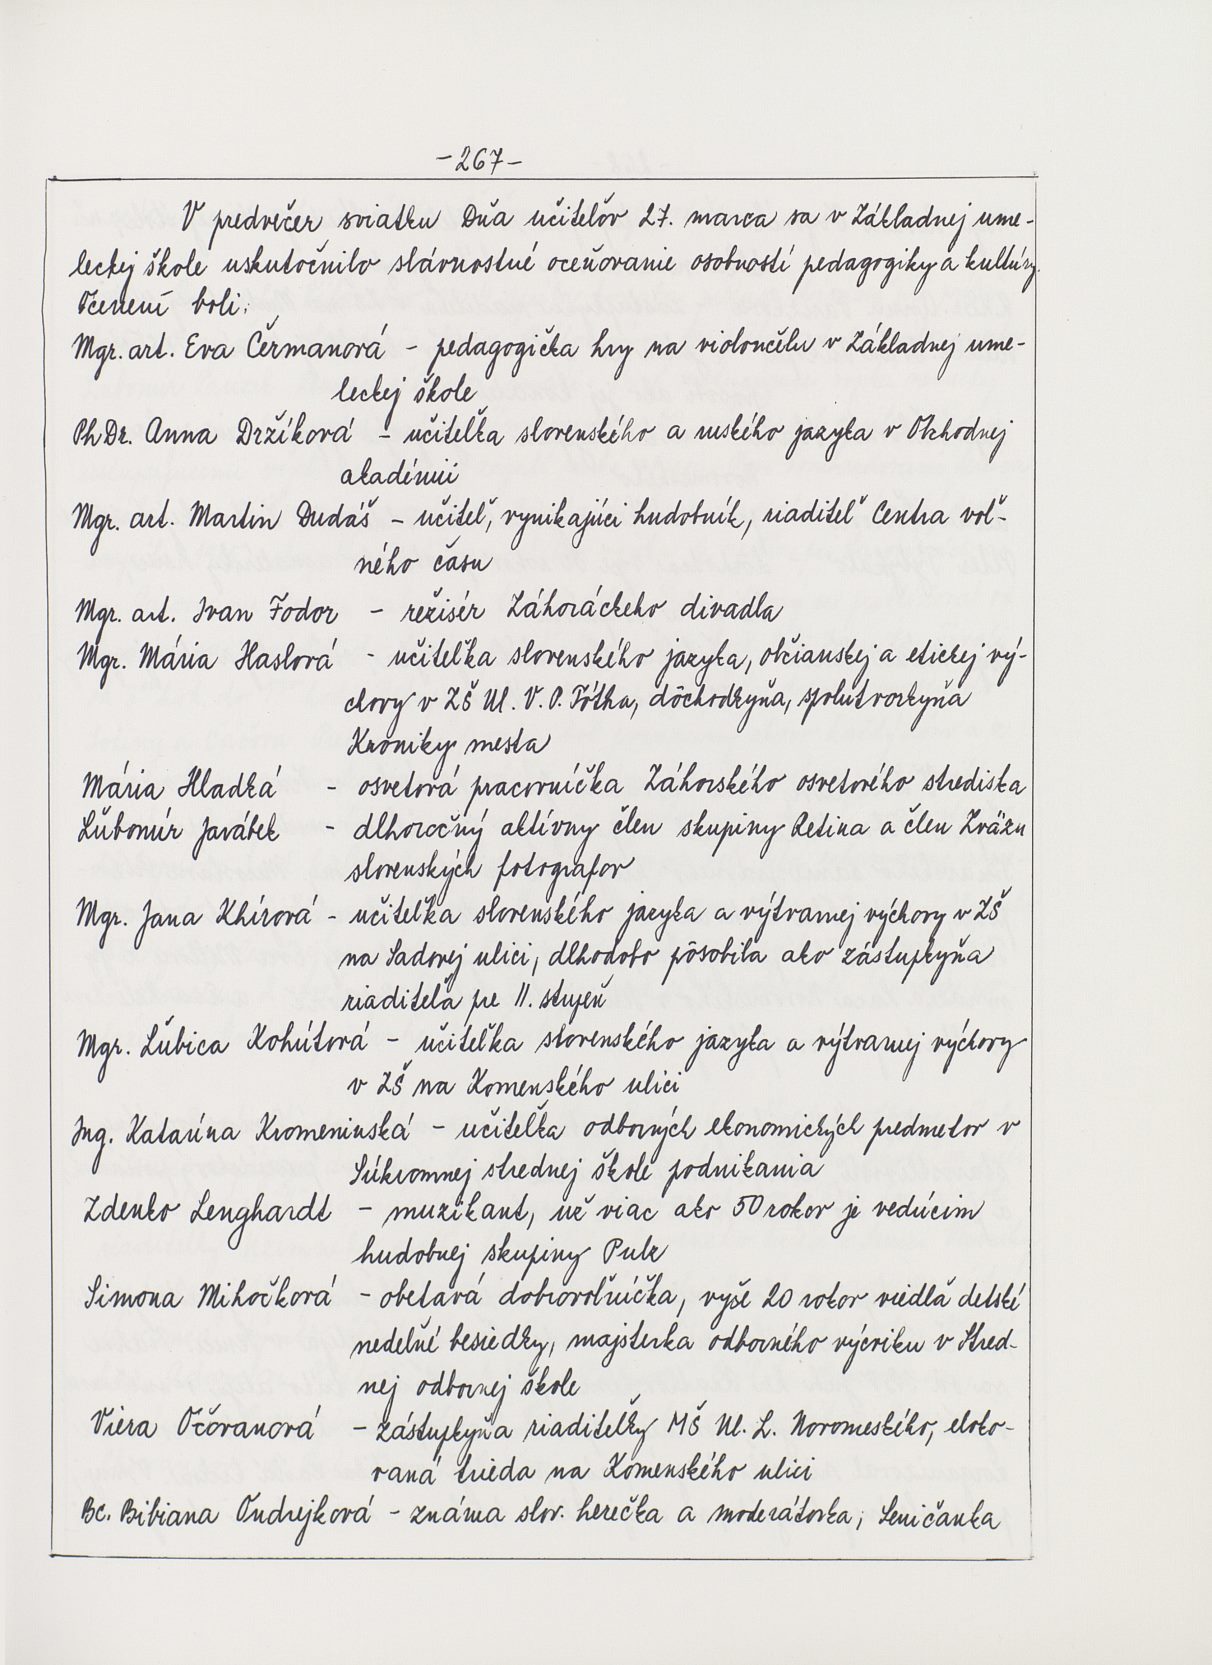 -267-
V predvečer sviatku Dňa učiteľov 27. marca sa v Základnej ume-
leckej škole uskutočnilo slávnostné oceňovanie osobností pedagogiky a kultúry.
Ocenení boli:
Mgr. art. Eva Čermanová - pedagogička hry na violončelu v Základnej ume-
leckej škole
PhDr. Anna Držíková - učiteľka slovenského a ruského jazyka v Obchodnej
akadémii
Mgr. art. Martin Dudáš - učiteľ, vynikajúci hudobník, riaditeľ Centra voľ-
ného času
Mgr. art. Ivan Fodor - režisér Záhoráckeho divadla
Mgr. Mária Haslová - učiteľka slovenského jazyka, občianskej a etickej vý-
chovy v ZŠ Ul. V. P. Tótha, dôchodkyňa, spolutvorkyňa
Kroniky mesta
Mária Hladká - osvetová pracovníčka Záhorského osvetového strediska
Ľubomír Jarábek - dlhoročný aktívny člen skupiny Retina a člen Zväzu
slovenských fotografov
Mgr. Jana Khírová - učiteľka slovenského jazyka a výtvarnej výchovy v ZŠ
na Sadovej ulici, dlhodobo pôsobila ako zástupkyňa
riaditeľa pre II. stupeň
Mgr. Ľubica Kohútová - učiteľka slovenského jazyka a výtvarnej výchovy
v ZŠ na Komenského ulici
Ing. Katarína Kromeninská - učiteľka odborných ekonomických predmetov v
Súkromnej strednej škole podnikania
Zdenko Lenghardt - muzikant, už viac ako 50 rokov je vedúcim
hudobnej skupiny Pulz
Simona Mihočková - obetavá dobrovoľníčka, vyše 20 rokov viedla detské
nedeľné besiedky, majsterka odborného výcviku v Stred-
nej odbornej škole
Viera Očovanová - zástupkyňa riaditeľky MŠ Ul. L. Novomeského, eloko-
vaná trieda na Komenského ulici
Bc. Bibiana Ondrejková - známa slov. herečka a moderátorka, Seničanka